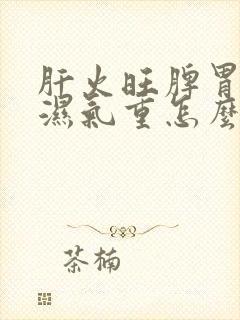 肝火旺脾胃
濕氣重怎麼
茶楠